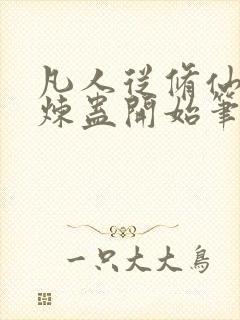 凡人從脩仙
煉蛊開始筆
一只大大鳥